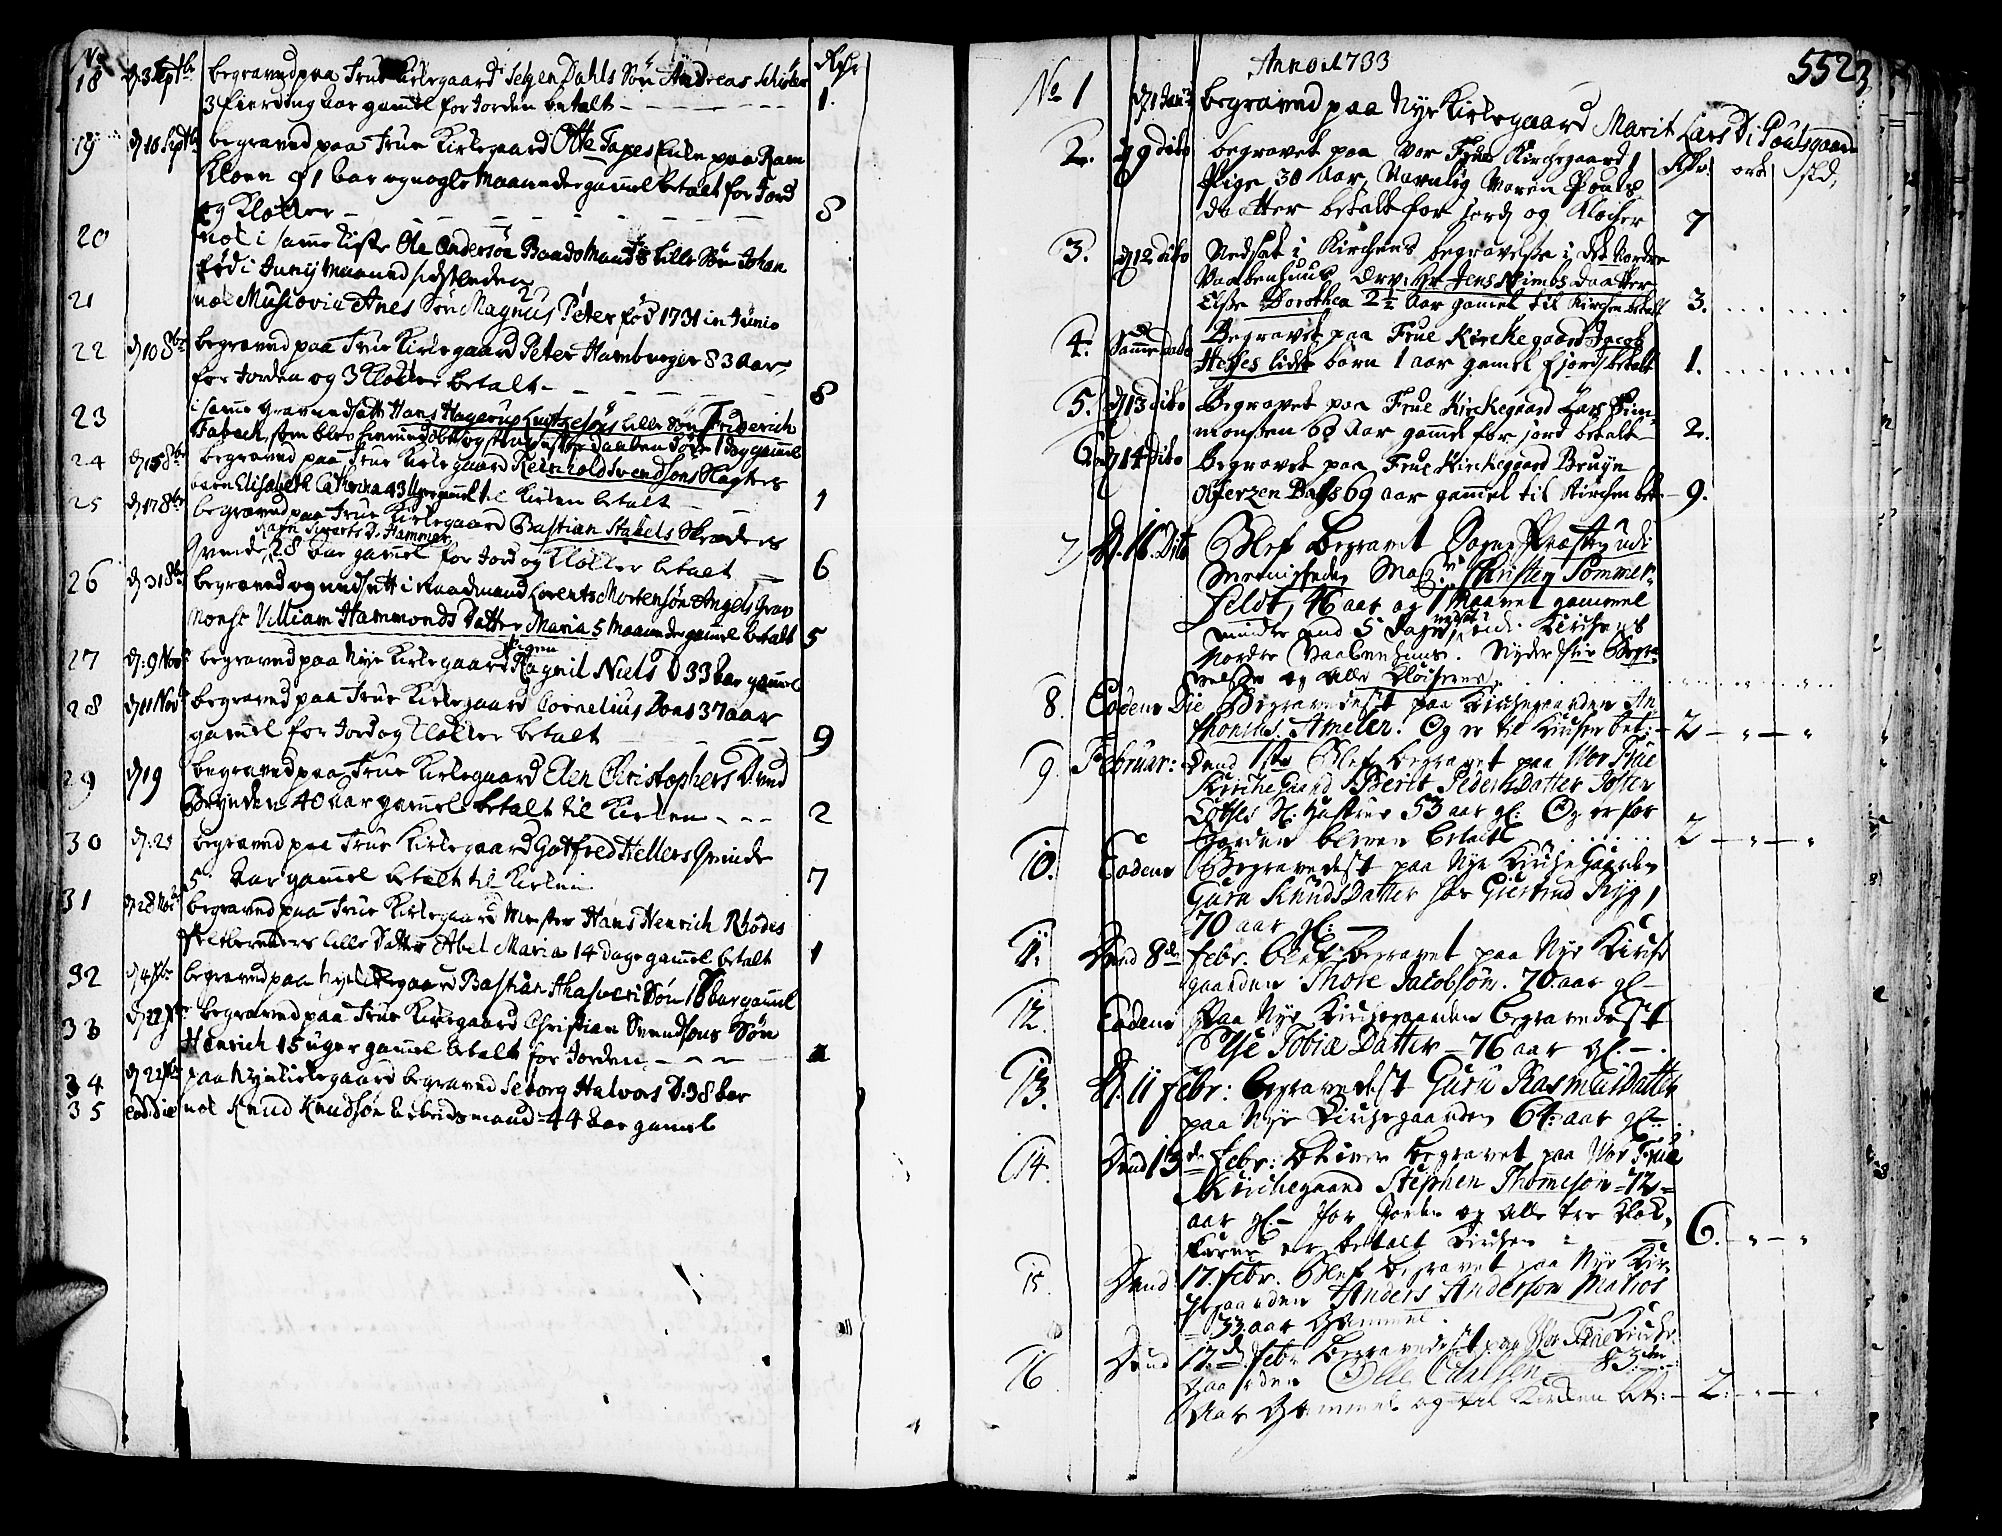 No
Rdr
18 d. 3 Septbr begraved paa Frue Kirkegaard Seigen Dahls Søn Andreas Schiøler
3 fierding aar gammel for Jorden betalt - - - 1.
19 d. 10 Septbr begraved paa Frue Kirkegaard Otte Tapes lille paa
Kloen 1 aar og nogle Maaneder gammel betalt for Jord
og Klokker - - - 8
20 noch i samme kiste Ole Andersøn Baadsmands lille Søn Johan
fød i Junij Maaned sidstleden
21 noch Muscovia Anes Søn Magnus Peter fød 1731 in Junio
22 d. 10 8br begraved paa Frue Kirkegaard Peter Hamburger 83 aar
for Jorden og 3 Klokker betalt - - - 8
23 i samme Grav nedsatt Hans Hagerup lille Søn Friderich
Faback, som blev hiemmedøbt og døde 1 dag gammel
24 d. 15 8br begraved paa Frue Kirkegaard Reinhold Svendsøns Slagters
barn Elisabeth Cathrina 43 Uger gammel til Kirken betalt - 1
25 d. 17 8br begraved paa Frue Kirkegaard Bastian Stabels Skræders
Karen Siverts D. Hammer
Qvinde, 28 aar gammel for Jord og Klokker betalt - 6
26 d. 31 8br begraved og nedsatt i Raadmand Lorents Mortensøn Angels Grav
Monsr Villiam Hammonds Datter Maria 5 Maaneder gammel betalt 5
27 d. 9 Novr begraved paa Nye Kirkegaard Pigen Ragnil Niels D 33 aar gammel
28 d. 11 Novr begraved paa Frue Kirkegaard Cornelius Dons 37 aar
gammel for Jord og Klokker betalt - - - 9
29 d. 19 begraved paa Frue Kirkegaard Elen Christophers D. ved
Brynden 40 aar gammel betalt til Kirken - - - 2
30 d. 25 begraved paa Frue Kirkegaard Gotfred Hellers Qvinde
aar gammel betalt til Kirken 7
31 d. 28 Novr begraved paa Frue Kirkegaard Mester Hans Henrich Rhodes
Feltberenders lille Datter Abel Maria 14 dage gammel betalt 1
32 d. 4 Xbr begraved paa Nye Kirkegaard Bastian Ahasveri Søn 18 aar gammel
33 begraved paa Frue Kirkegaard Christian Svendsøns Søn
Henrich 15 uger gammel betalt for Jorden - - - 1
34 d. 22 Xbr paa Nye Kirkegaard begraved Seborg Halvors D. 38 aar
35 eod: die noch Knud Knudsøn Arbeidsmand - 44 aar gammel
Anno 1733
552
No 1 d. 1 Janr begraved paa Nye Kirkegaard Marit Lars D i Poulsgaarn
Rdr: ort sld,
2. d. 9 dito begravet paa Vor Frue Kirchegaard
Pige 30 Aar, Navnlig Maren Pouls
daatter betalt for jord og Klocher 7
3. d. 12 dito Nedsat i Kirchens begravelse i det Nordre
Vaabenhuus Hr Jens Kimbs daatter
Else Dorothea 2½ Aar gammel til Kirchen betalt 3.
4. Samme dato Begravet paa Frue Kirckegaard Jacob
Hesses lidet barn 1 aar gamel f jord betalt 1.
5. d. 13 dito Begravet paa Frue Kirckegaard Lars Sim-
monsen 68 Aar gamel for jord betalt 2.
6. d. 14 dito Begravet paa Frue Kirckegaard Bruyn
Dahls 69 aar gammel til Kirchen bet. 9.
7 D. 16. Dito Blef Begravet Sogne Præsten udi
Meenigheden Magr. Christen Sommer-
Feldt, 46 aar og 1 Maanet gammel
mindre end 5 Dage, nedsat udi Kirchens
Nordre Vaabenhuus. Nyder frie Begra-
velse og alle Klocherne.
8. Eodem Die Begravedest paa Kirchegaarden An-
thonius Ameler. Og er til Kirchen bet: - 2 - " - "
9 Februar: Dend 1ste Blef begravet paa Vor Frue
Kirche Gaard Berit Peders Datter Tosten
Sl: Hustrue 53 aar gl: Og er for
Jorden bleven betalt 2 - " - "
10. Eodem Begravedest paa Nye Kirche Gaarden
Guru Knuds Datter hos Giertrud Ryg,
70 aar gl: -
11. Dend 8de Febr. Blef begravet paa Nye Kirche
gaarden Thore Jacobsøn. 70 aar gl -
12. Eodem Paa Nye Kirchegaarden begravedest
Else Tobiæ Datter - 76 aar gl. -
13. D. 11 Febr: begravedest Guru Rasmus Datter
paa Nye Kirchegaarden 64 aar gl -
14. Dend 13de Febr: bliven begravet paa Vor Frue
Kirchegaard Stephen Thomesøn - 72 -
aar gl. - for Jorden og alle tre Klok-
kerne er betalt Kirchen - 6. - " - "
15 Dend 17. Febr. Blef begravet paa Nye Kir-
chegaarden Anders Anderson Matros
- 33 aar Gammel.
16 Dend 17. Febr begravedest paa Vor Frue Kirche
gaarden Olle 83
Aar Gammel og til Kirchen bet: - 2. - " - "